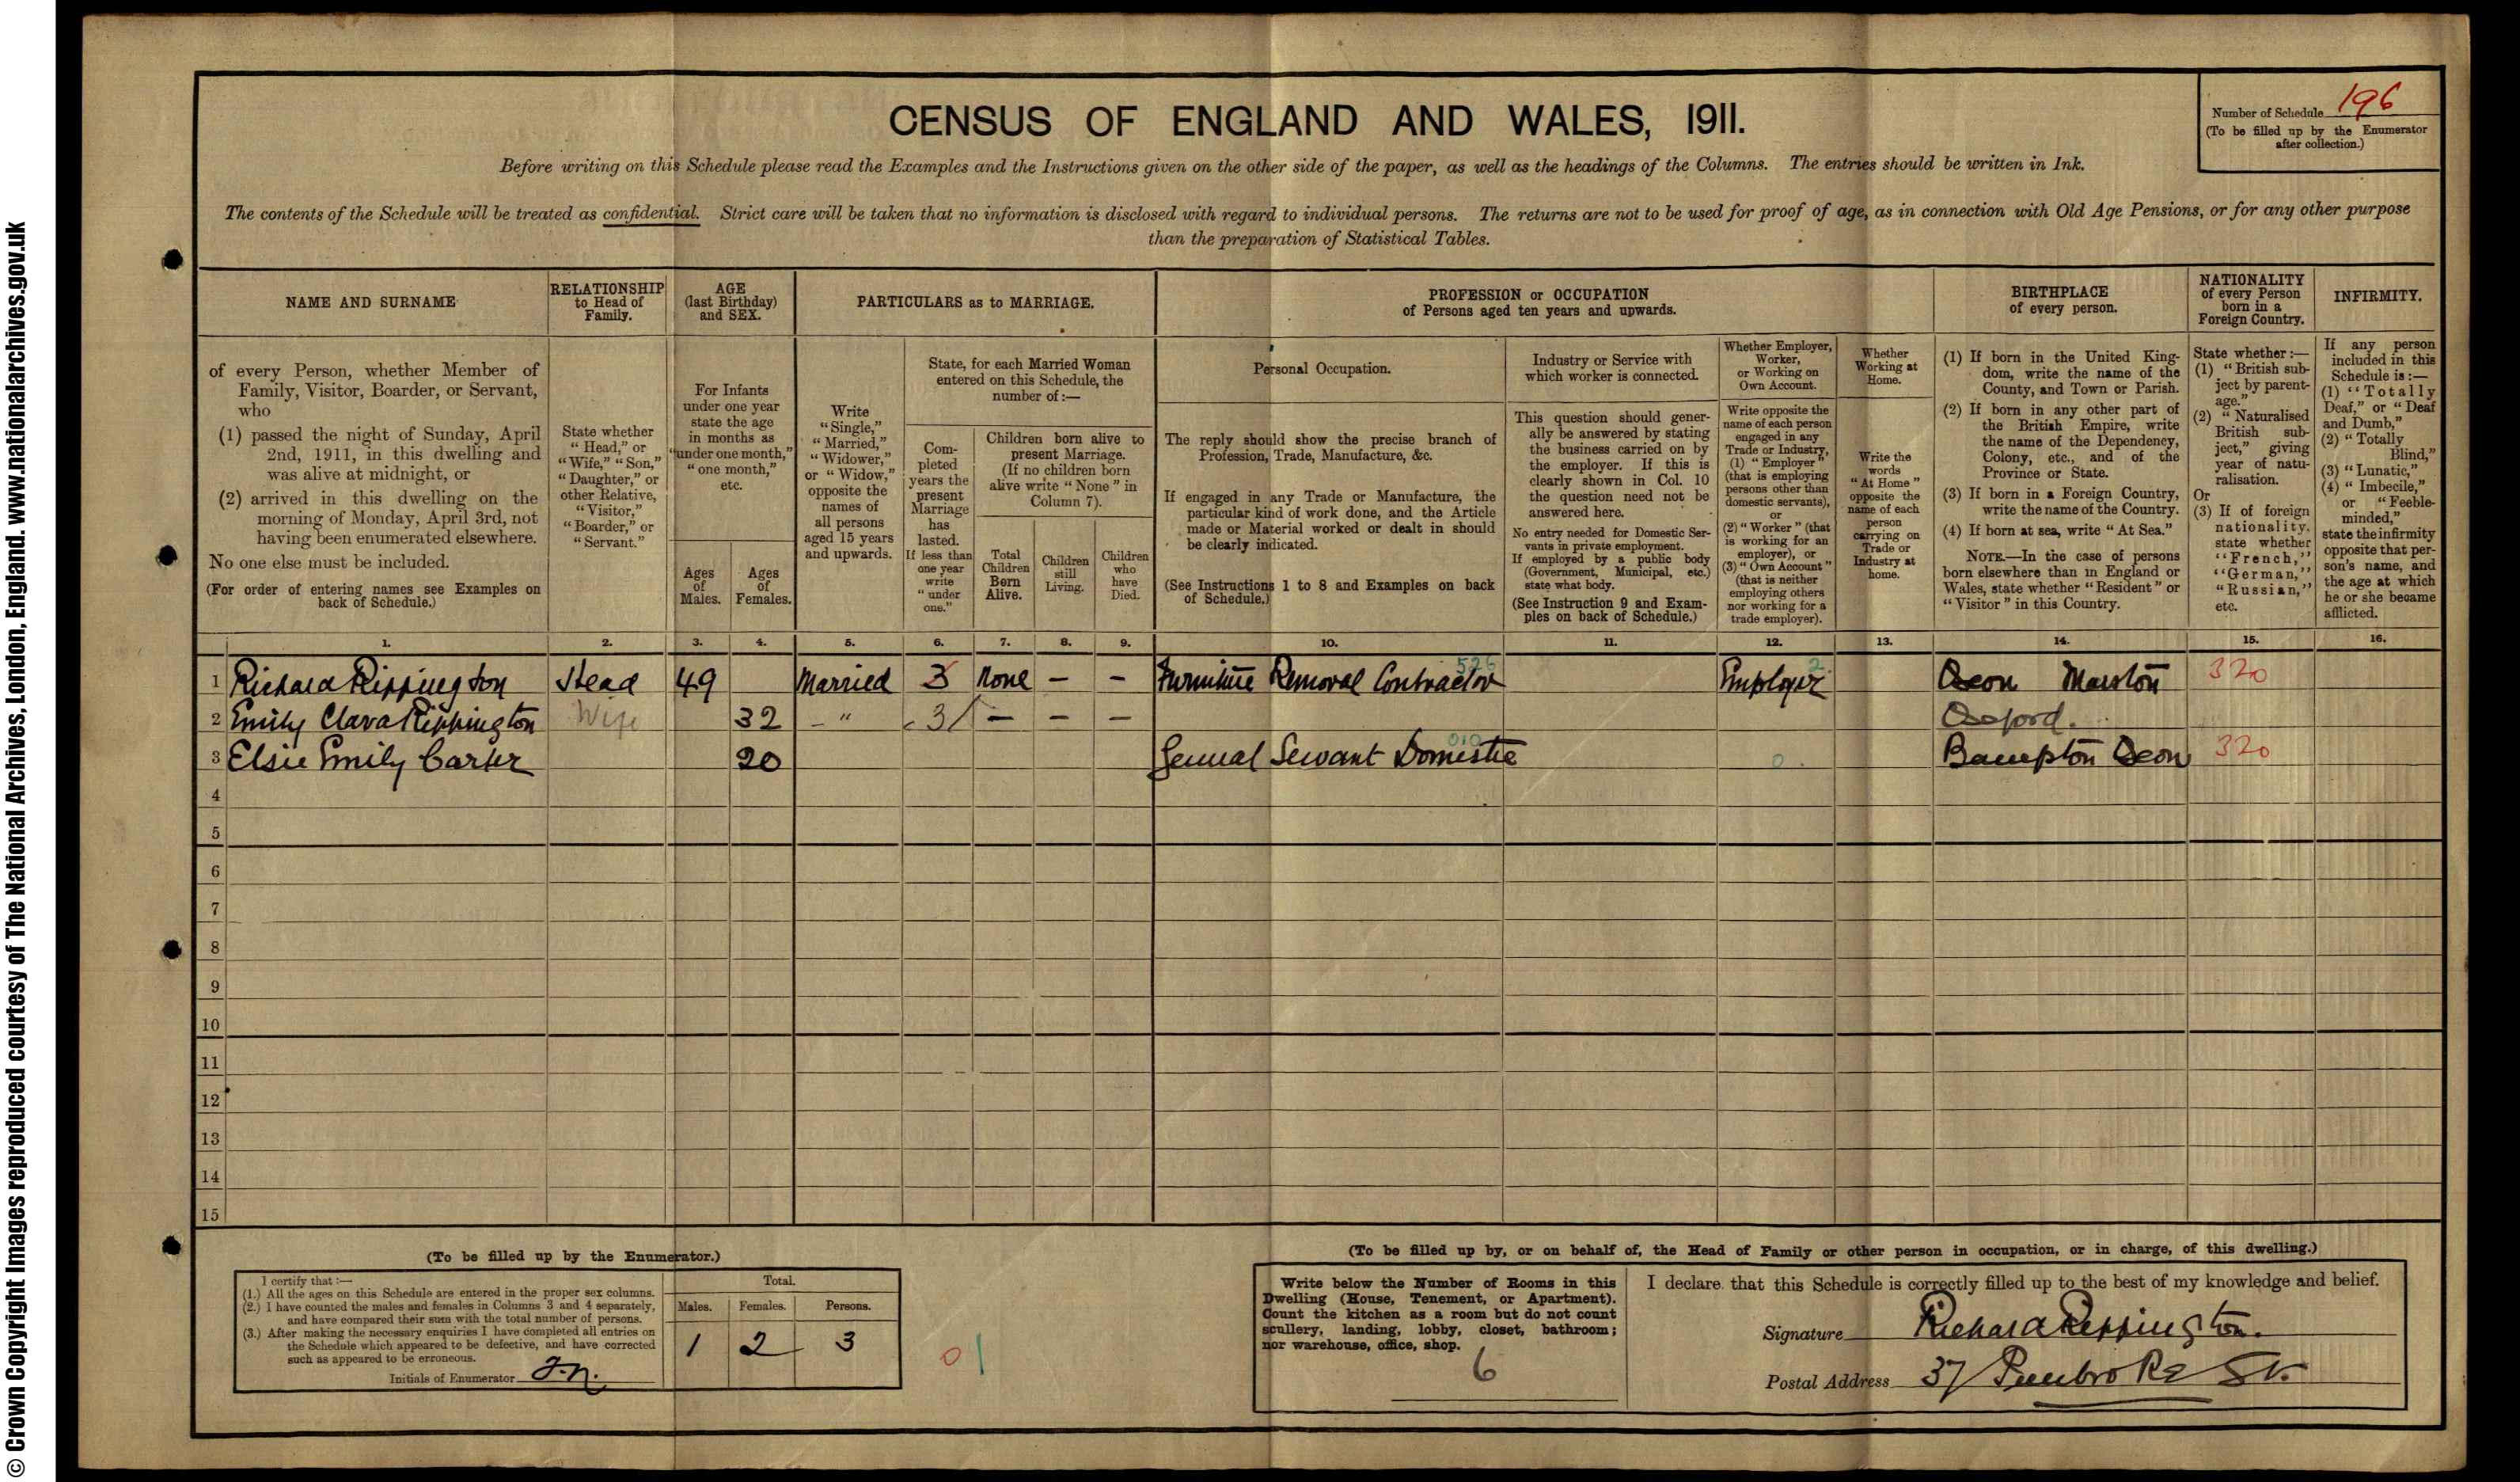 © Crown Copyright Images reproduced courtesy of The National Archives, London, England. www.nationalarchives.gov.uk
CENSUS OF ENGLAND AND WALES, 1911.
Number of Schedule 196
(To be filled up by the Enumerator
after collection.)
Before writing on this Schedule please read the Examples and the Instructions given on the other side of the paper, as well as the headings of the Columns. The entries should be written in Ink.
The contents of the Schedule will be treated as confidential. Strict care will be taken that no information is disclosed with regard to individual persons. The returns are not to be used for proof of age, as in connection with Old Age Pensions, or for any other purpose
than the preparation of Statistical Tables.
NAME AND SURNAME
of every Person, whether Member of
Family, Visitor, Boarder, or Servant,
who
(1) passed the night of Sunday, April
2nd, 1911, in this dwelling and
was alive at midnight, or
(2) arrived in this dwelling on the
morning of Monday, April 3rd, not
having been enumerated elsewhere.
No one else must be included.
(For order of entering names see Examples on
back of Schedule.)
RELATIONSHIP
to Head of
Family.
State whether
"Head," or
"Wife," "Son,"
"Daughter," or
other Relative,
"Visitor,"
"Boarder," or
"Servant."
AGE
(last Birthday)
and SEX.
For Infants
under one year
state the age
in months as
"under one month,"
"one month,"
etc.
Ages
of
Males.
Ages
of
Females.
PARTICULARS as to MARRIAGE.
Write
"Single,"
"Married,"
"Widower,"
or "Widow,"
opposite the
names of
all persons
aged 15 years
and upwards.
State, for each Married Woman
entered on this Schedule, the
number of:—
Com-
pleted
years the
present
Marriage
has
lasted.
If less than
one year
write
"under
one."
Children born alive to
present Marriage.
(If no children born
alive write "None" in
Column 7).
Total
Children
Born
Alive.
Children
still
Living.
Children
who
have
Died.
PROFESSION or OCCUPATION
of Persons aged ten years and upwards.
Personal Occupation.
The reply should show the precise branch of
Profession, Trade, Manufacture, &c.
If engaged in any Trade or Manufacture, the
particular kind of work done, and the Article
made or Material worked or dealt in should
be clearly indicated.
(See Instructions 1 to 8 and Examples on back
of Schedule.)
Industry or Service with
which worker is connected.
This question should gener-
ally be answered by stating
the business carried on by
the employer. If this is
clearly shown in Col. 10
the question need not be
answered here.
No entry needed for Domestic Ser-
vants in private employment.
If employed by a public body
(Government, Municipal, etc.)
state what body.
(See Instruction 9 and Exam-
ples on back of Schedule.)
Whether Employer,
Worker,
or Working on
Own Account.
Write opposite the
name of each person
engaged in any
Trade or Industry,
(1) "Employer"
(that is employing
persons other than
domestic servants),
or
(2) "Worker" (that
is working for an
employer), or
(3) "Own Account"
(that is neither
employing others
nor working for a
trade employer).
Whether
Working at
Home.
Write the
words
"At Home"
opposite the
name of each
person
carrying on
Trade or
Industry at
home.
BIRTHPLACE
of every person.
(1) If born in the United King-
dom, write the name of the
County, and Town or Parish.
(2) If born in any other part of
the British Empire, write
the name of the Dependency,
Colony, etc., and of the
Province or State.
(3) If born in a Foreign Country,
write the name of the Country.
(4) If born at sea, write "At Sea."
NOTE.—In the case of persons
born elsewhere than in England or
Wales, state whether "Resident" or
"Visitor" in this Country.
NATIONALITY
of every Person
born in a
Foreign Country.
State whether:—
(1) "British sub-
ject by parent-
age."
(2) "Naturalised
British sub-
ject," giving
year of natu-
ralisation.
Or
(3) If of foreign
nationality,
state whether
"French,"
"German,"
"Russian,"
etc.
INFIRMITY.
If any person
included in this
Schedule is:—
(1) "Totally
Deaf," or "Deaf
and Dumb,"
(2) "Totally
Blind,"
(3) "Lunatic,"
(4) "Imbecile,"
or "Feeble-
minded,"
state the infirmity
opposite that per-
son's name, and
the age at which
he or she became
afflicted.
1. 2. 3. 4. 5. 6. 7. 8. 9. 10. 11. 12. 13. 14. 15. 16.
1 Richard Rippington Head 49 Married 3 None – – Furniture Removal Contractor 526 Employer 2 Oxon Marston 320
2 Emily Clara Rippington Wife 32 – " 3 – – – Oxford.
3 Elsie Emily Carter 20 General Servant Domestic 010 0. Bampton Oxon 320
4
5
6
7
8
9
10
11
12
13
14
15
(To be filled up by the Enumerator.)
I certify that:—
(1.) All the ages on this Schedule are entered in the proper sex columns.
(2.) I have counted the males and females in Columns 3 and 4 separately,
and have compared their sum with the total number of persons.
(3.) After making the necessary enquiries I have completed all entries on
the Schedule which appeared to be defective, and have corrected
such as appeared to be erroneous.
Initials of Enumerator
Total.
Males. Females. Persons.
1 2 3
0 1
(To be filled up by, or on behalf of, the Head of Family or other person in occupation, or in charge, of this dwelling.)
Write below the Number of Rooms in this
Dwelling (House, Tenement, or Apartment).
Count the kitchen as a room but do not count
scullery, landing, lobby, closet, bathroom;
nor warehouse, office, shop.
6
I declare that this Schedule is correctly filled up to the best of my knowledge and belief.
Signature Richard Rippington.
Postal Address 37 Pembroke St.